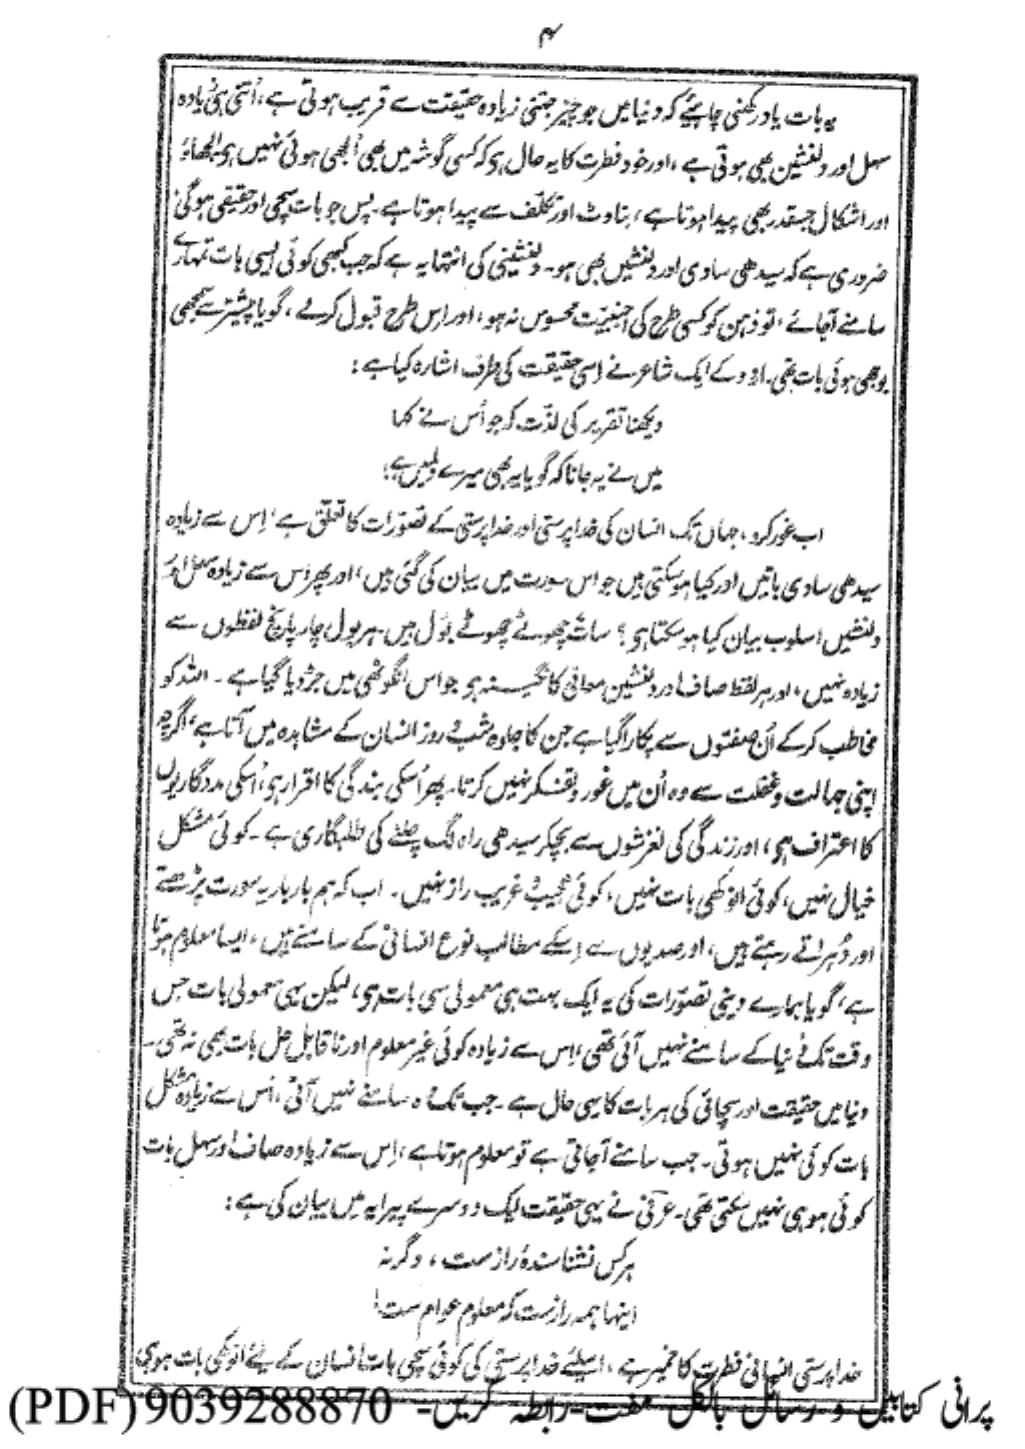 ۴
یہ بات یاد رکھنی چاہئیے کہ دنیا میں جو چیز جتنی زیادہ حقیقت سے قریب ہوتی ہے، اُتنی ہی زیادہ
سہل اور دلنشین بھی ہوتی ہے، اور خود فطرت کا یہ حال ہی کہ کسی گوشہ میں بھی اُلجھی ہوئی نہیں ہی۔ الجھاؤ
اور اشکال جسقدر بھی پیدا ہوتا ہے، بناوٹ اور تکلّف سے پیدا ہوتا ہے۔ پس جو بات سچی اور حقیقی ہوگی
ضروری ہے کہ سیدھی سادی اور دلنشیں بھی ہو۔ دلنشینی کی انتہا یہ ہے کہ جب کبھی کوئی ایسی بات تمہارے
سامنے آجائے، تو ذہن کو کسی طرح کی اجنبیّت محسوس نہ ہو، اور اِس طرح قبول کرلے، گویا پیشتر سے سمجھی
بوجھی ہوئی بات تھی۔ اردو کے ایک شاعر نے اِسی حقیقت کی طرف اشارہ کیا ہے:
دیکھنا تقریر کی لذّت کہ جو اُس نے کہا
میں نے یہ جانا کہ گویا یہ بھی میرے دلمیں ہے!
اب غور کرو، جہاں تک انسان کی خدا پرستی اور خدا پرستی کے تصوّرات کا تعلّق ہے، اِس سے زیادہ
سیدھی سادی باتیں اور کیا ہوسکتی ہیں جو اس سورت میں بیان کی گئی ہیں، اور پھر اس سے زیادہ سہل اور
دلنشیں اسلوب بیان کیا ہو سکتا ہی؟ سات چھوٹے چھوٹے بول ہیں۔ ہر بول چار پانچ لفظوں سے
زیادہ نہیں، اور ہر لفظ صاف اور دلنشین معانی کا نگینہ ہی جو اس انگوٹھی میں جڑ دیا گیا ہے۔ اللہ کو
مخاطب کرکے اُن صفتوں سے پکارا گیا ہے جن کا جلوہ شب و روز انسان کے مشاہدہ میں آتا ہے، اگرچہ
اپنی جہالت و غفلت سے وہ اُن میں غور و تفکر نہیں کرتا۔ پھر اُسکی بندگی کا اقرار ہی، اُسکی مددگاریوں
کا اعتراف ہی، اور زندگی کی لغزشوں سے بچکر سیدھی راہ لگ چلنے کی طلبگاری ہے۔ کوئی مشکل
خیال نہیں، کوئی انوکھی بات نہیں، کوئی عجیب و غریب راز نہیں۔ اب کہ ہم بار بار یہ سورت پڑھتے
اور دُہراتے رہتے ہیں، اور صدیوں سے اِسکے مطالب نوع انسانی کے سامنے ہیں، ایسا معلوم ہوتا
ہے، گویا ہمارے دینی تصوّرات کی یہ ایک بہت ہی معمولی سی بات ہی، لیکن یہی معمولی بات جس
وقت تک دنیا کے سامنے نہیں آئی تھی، اِس سے زیادہ کوئی غیر معلوم اور ناقابل حل بات بھی نہ تھی۔
دنیا میں حقیقت اور سچائی کی ہر بات کا یہی حال ہے۔ جب تک وہ سامنے نہیں آتی، اُس سے زیادہ مشکل
بات کوئی نہیں ہوتی۔ جب سامنے آجاتی ہے تو معلوم ہوتا ہے، اِس سے زیادہ صاف اور سہل بات
کوئی ہو ہی نہیں سکتی تھی۔ عرفی نے یہی حقیقت ایک دوسرے پیرایہ میں بیان کی ہے:
ہرکس نشناسندۂ رازست، وگرنہ
اینہا ہمہ رازست کہ معلوم عوام ست!
خدا پرستی انسانی فطرت کا خمیر ہے، اسلئے خدا پرستی کی کوئی سچی بات انسان کے لئے انوکھی بات ہو ہی
پرانی کتابیں و رسائل بالکل مفت۔ رابطہ کریں۔ 9039288870 (PDF)